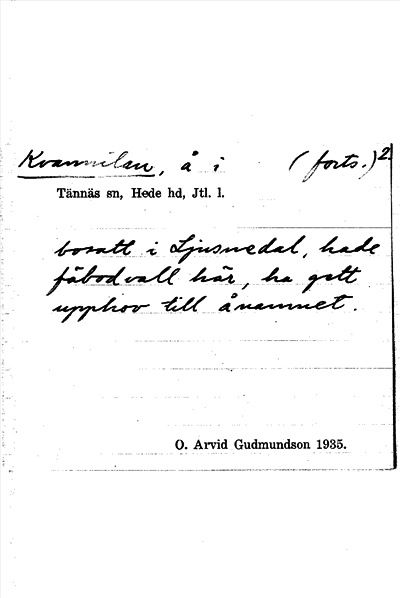 Kvarnilan, å i (forts.) 2.
Tännäs sn, Hede hd, Jtl. l.
bosatt i Ljusnedal, hade
fäbodvall här, ha gett
upphov till ånamnet.
O. Arvid Gudmundson 1935.